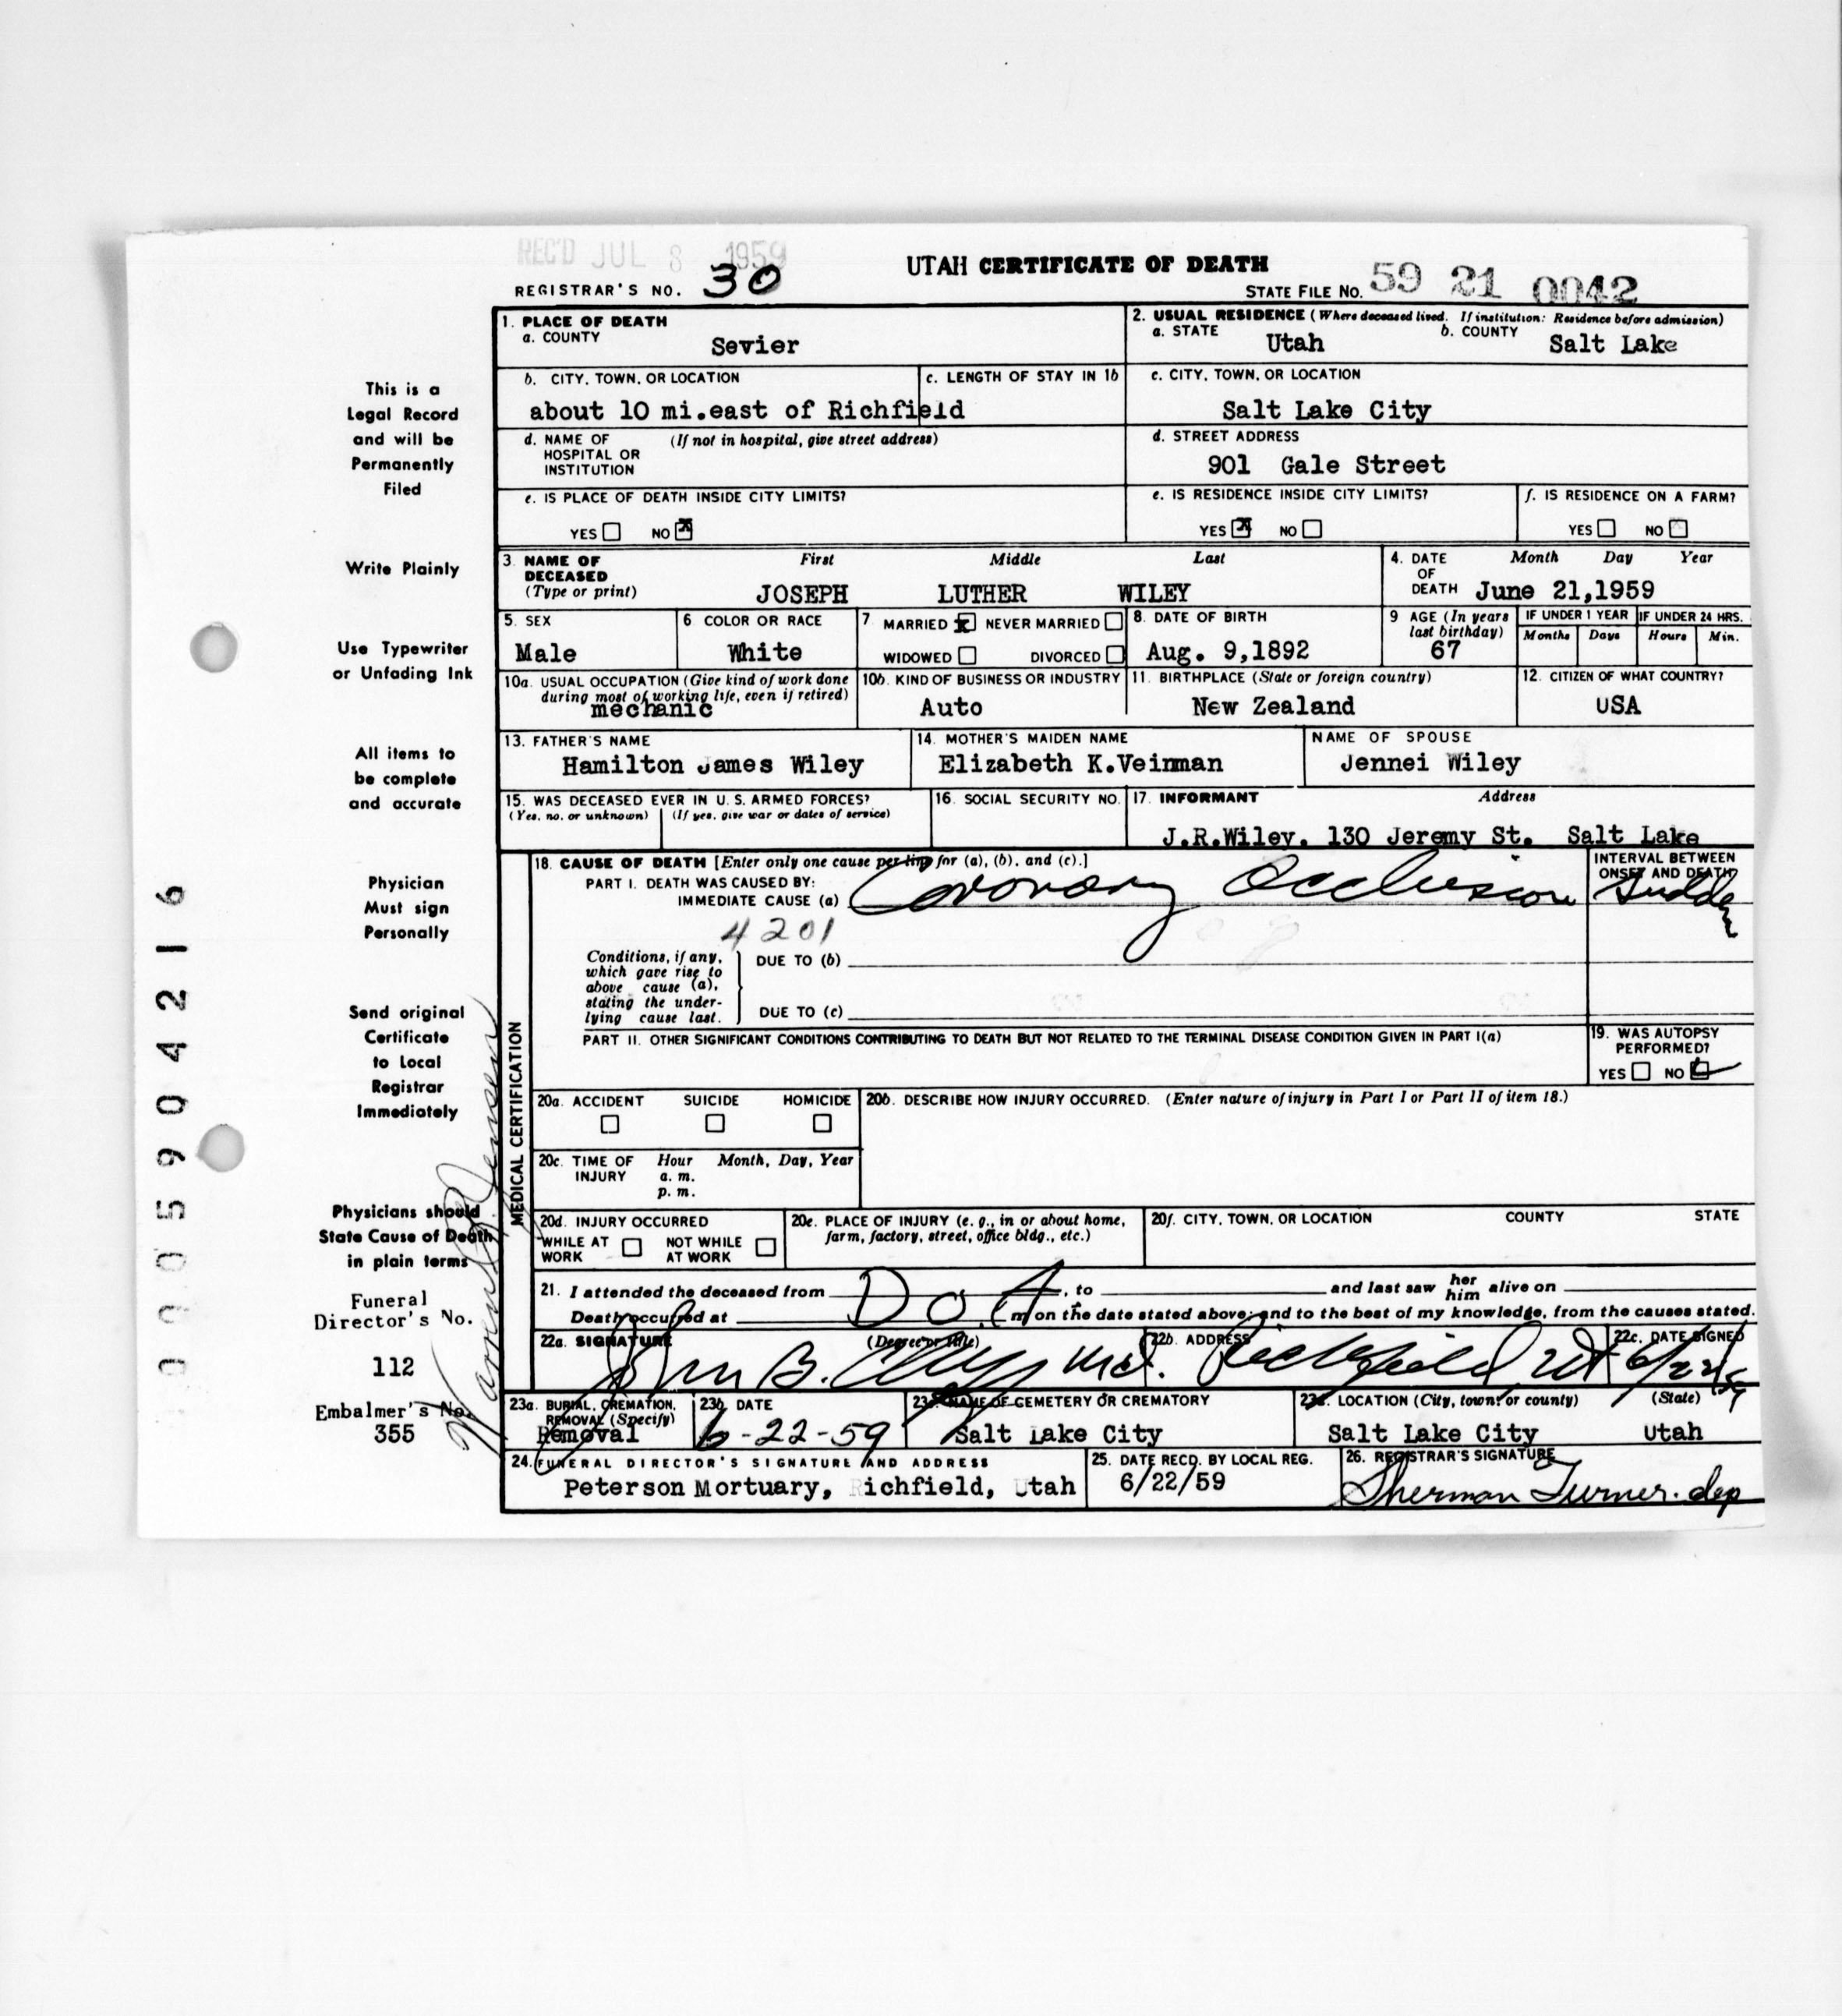 REC'D JUL 8 1959
REGISTRAR'S NO. 30
UTAH CERTIFICATE OF DEATH
STATE FILE No. 59 21 0042
1. PLACE OF DEATH
a. COUNTY
Sevier
2. USUAL RESIDENCE (Where deceased lived. If institution: Residence before admission)
a. STATE Utah b. COUNTY Salt Lake
b. CITY, TOWN, OR LOCATION
about 10 mi.east of Richfield
c. LENGTH OF STAY IN 1b
c. CITY, TOWN, OR LOCATION
Salt Lake City
d. NAME OF HOSPITAL OR INSTITUTION (If not in hospital, give street address)
d. STREET ADDRESS
901 Gale Street
e. IS PLACE OF DEATH INSIDE CITY LIMITS?
YES NO X
e. IS RESIDENCE INSIDE CITY LIMITS?
YES X NO
f. IS RESIDENCE ON A FARM?
YES NO
3. NAME OF DECEASED (Type or print)
First Middle Last
JOSEPH LUTHER WILEY
4. DATE OF DEATH Month Day Year
June 21,1959
5. SEX
Male
6 COLOR OR RACE
White
7 MARRIED X NEVER MARRIED
WIDOWED DIVORCED
8. DATE OF BIRTH
Aug. 9,1892
9 AGE (In years last birthday)
67
IF UNDER 1 YEAR IF UNDER 24 HRS.
Months Days Hours Min.
10a. USUAL OCCUPATION (Give kind of work done during most of working life, even if retired)
mechanic
10b. KIND OF BUSINESS OR INDUSTRY
Auto
11. BIRTHPLACE (State or foreign country)
New Zealand
12. CITIZEN OF WHAT COUNTRY?
USA
13. FATHER'S NAME
Hamilton James Wiley
14. MOTHER'S MAIDEN NAME
Elizabeth K.Veinman
NAME OF SPOUSE
Jennei Wiley
15. WAS DECEASED EVER IN U. S. ARMED FORCES?
(Yes, no, or unknown) (If yes, give war or dates of service)
16. SOCIAL SECURITY NO.
17. INFORMANT Address
J.R.Wiley. 130 Jeremy St. Salt Lake
MEDICAL CERTIFICATION
18. CAUSE OF DEATH [Enter only one cause per line for (a), (b), and (c).]
PART I. DEATH WAS CAUSED BY:
IMMEDIATE CAUSE (a) Coronary Occlusion
INTERVAL BETWEEN ONSET AND DEATH
Sudden
4201
Conditions, if any, which gave rise to above cause (a), stating the underlying cause last.
DUE TO (b)
DUE TO (c)
PART II. OTHER SIGNIFICANT CONDITIONS CONTRIBUTING TO DEATH BUT NOT RELATED TO THE TERMINAL DISEASE CONDITION GIVEN IN PART I(a)
19. WAS AUTOPSY PERFORMED?
YES NO
20a. ACCIDENT SUICIDE HOMICIDE
20b. DESCRIBE HOW INJURY OCCURRED. (Enter nature of injury in Part I or Part II of item 18.)
20c. TIME OF INJURY Hour Month, Day, Year
a. m.
p. m.
20d. INJURY OCCURRED
WHILE AT WORK NOT WHILE AT WORK
20e. PLACE OF INJURY (e. g., in or about home, farm, factory, street, office bldg., etc.)
20f. CITY, TOWN, OR LOCATION COUNTY STATE
21. I attended the deceased from DOA, to and last saw her him alive on
Death occurred at m on the date stated above; and to the best of my knowledge, from the causes stated.
22a. SIGNATURE (Degree or title)
John B. M.D.
22b. ADDRESS
Richfield Ut
22c. DATE SIGNED
6/22/59
23a. BURIAL, CREMATION, REMOVAL (Specify)
Removal
23b. DATE
6-22-59
23c. NAME OF CEMETERY OR CREMATORY
Salt Lake City
23d. LOCATION (City, town, or county) (State)
Salt Lake City Utah
24. FUNERAL DIRECTOR'S SIGNATURE AND ADDRESS
Peterson Mortuary, Richfield, Utah
25. DATE RECD. BY LOCAL REG.
6/22/59
26. REGISTRAR'S SIGNATURE
Sherman Turner. dep
This is a
Legal Record
and will be
Permanently
Filed
Write Plainly
Use Typewriter
or Unfading Ink
All items to
be complete
and accurate
Physician
Must sign
Personally
Send original
Certificate
to Local
Registrar
Immediately
Physicians should
State Cause of Death
in plain terms
Funeral
Director's No.
112
Embalmer's No.
355
Jensen
0005904216